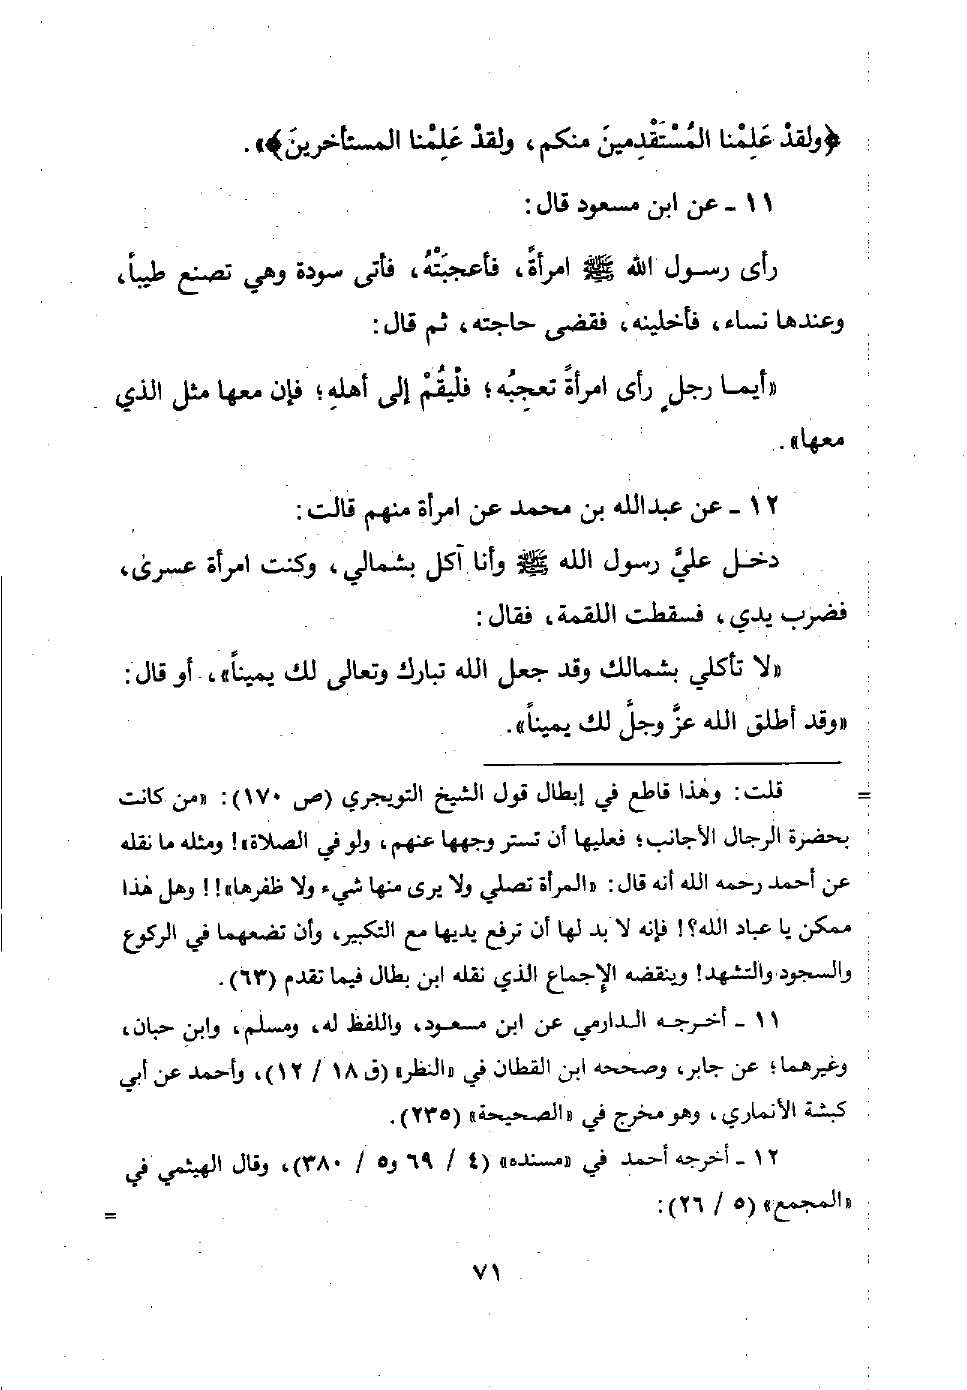 ﴿ولقدْ عَلِمْنا المُسْتَقْدِمينَ منكم، ولقدْ عَلِمْنا المستأخرينَ﴾».
١١ - عن ابن مسعود قال:
رأى رسول الله ﷺ امرأةً، فأعجبَتْهُ، فأتى سودة وهي تصنع طيباً،
وعندها نساء، فأخلينه، فقضى حاجته، ثم قال:
«أيما رجلٍ رأى امرأةً تعجِبُه؛ فلْيقُمْ إلى أهلهِ؛ فإن معها مثل الذي
معها».
١٢ - عن عبدالله بن محمد عن امرأة منهم قالت:
دخل عليَّ رسول الله ﷺ وأنا آكل بشمالي، وكنت امرأة عسرى،
فضرب يدي، فسقطت اللقمة، فقال:
«لا تأكلي بشمالك وقد جعل الله تبارك وتعالى لك يميناً»، أو قال:
«وقد أطلق الله عزَّ وجلَّ لك يميناً».
= قلت: وهذا قاطع في إبطال قول الشيخ التويجري (ص ١٧٠): «من كانت
بحضرة الرجال الأجانب؛ فعليها أن تستر وجهها عنهم، ولو في الصلاة»! ومثله ما نقله
عن أحمد رحمه الله أنه قال: «المرأة تصلي ولا يرى منها شيء ولا ظفرها»!! وهل هذا
ممكن يا عباد الله؟! فإنه لا بد لها أن ترفع يديها مع التكبير، وأن تضعهما في الركوع
والسجود والتشهد! وينقضه الإجماع الذي نقله ابن بطال فيما تقدم (٦٣).
١١ - أخرجه الدارمي عن ابن مسعود، واللفظ له، ومسلم، وابن حبان،
وغيرهما؛ عن جابر، وصححه ابن القطان في «النظر» (ق ١٨ / ١٢)، وأحمد عن أبي
كبشة الأنماري، وهو مخرج في «الصحيحة» (٢٣٥).
١٢ - أخرجه أحمد في «مسنده» (٤ / ٦٩ و٥ / ٣٨٠)، وقال الهيثمي في
«المجمع» (٥ / ٢٦): =
٧١